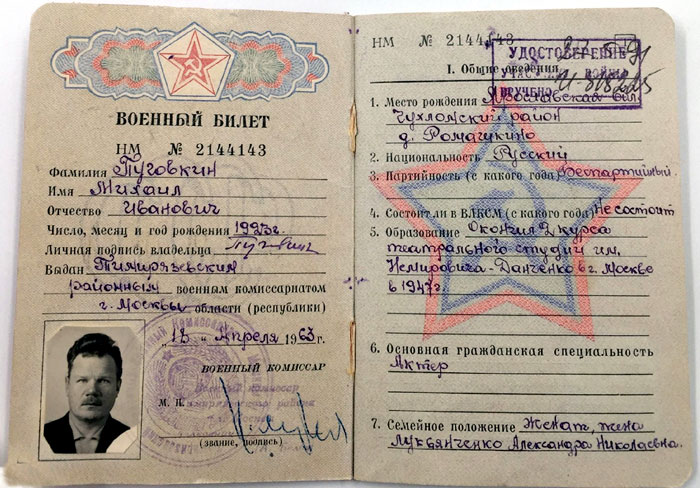 ВОЕННЫЙ БИЛЕТ
НМ № 2144143
Фамилия Пуговкин
Имя Михаил
Отчество Иванович
Число, месяц и год рождения 1923г.
Личная подпись владельца
Выдан Тимирязевским
районным военным комиссариатом
г. Москвы области (республики)
„13“ Апреля 1963г.
ВОЕННЫЙ КОМИССАР
М. П.
(звание, подпись)
НМ № 2144143
УДОСТОВЕРЕНИЕ
ВРУЧЕНО
I. Общие сведения
1. Место рождения Ярославская обл.
Чухломский район
д. Ромашкино
2. Национальность Русский
3. Партийность (с какого года) Беспартийный
4. Состоит ли в ВЛКСМ (с какого года) Не состоит
5. Образование Окончил 2 курса
театральной студии им.
Немировича-Данченко в г. Москве
в 1947г.
6. Основная гражданская специальность
Актер
7. Семейное положение Женат, жена
Лукьянченко Александра Николаевна.